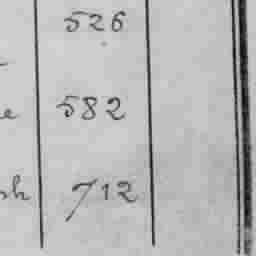 526
e 582
sh 712